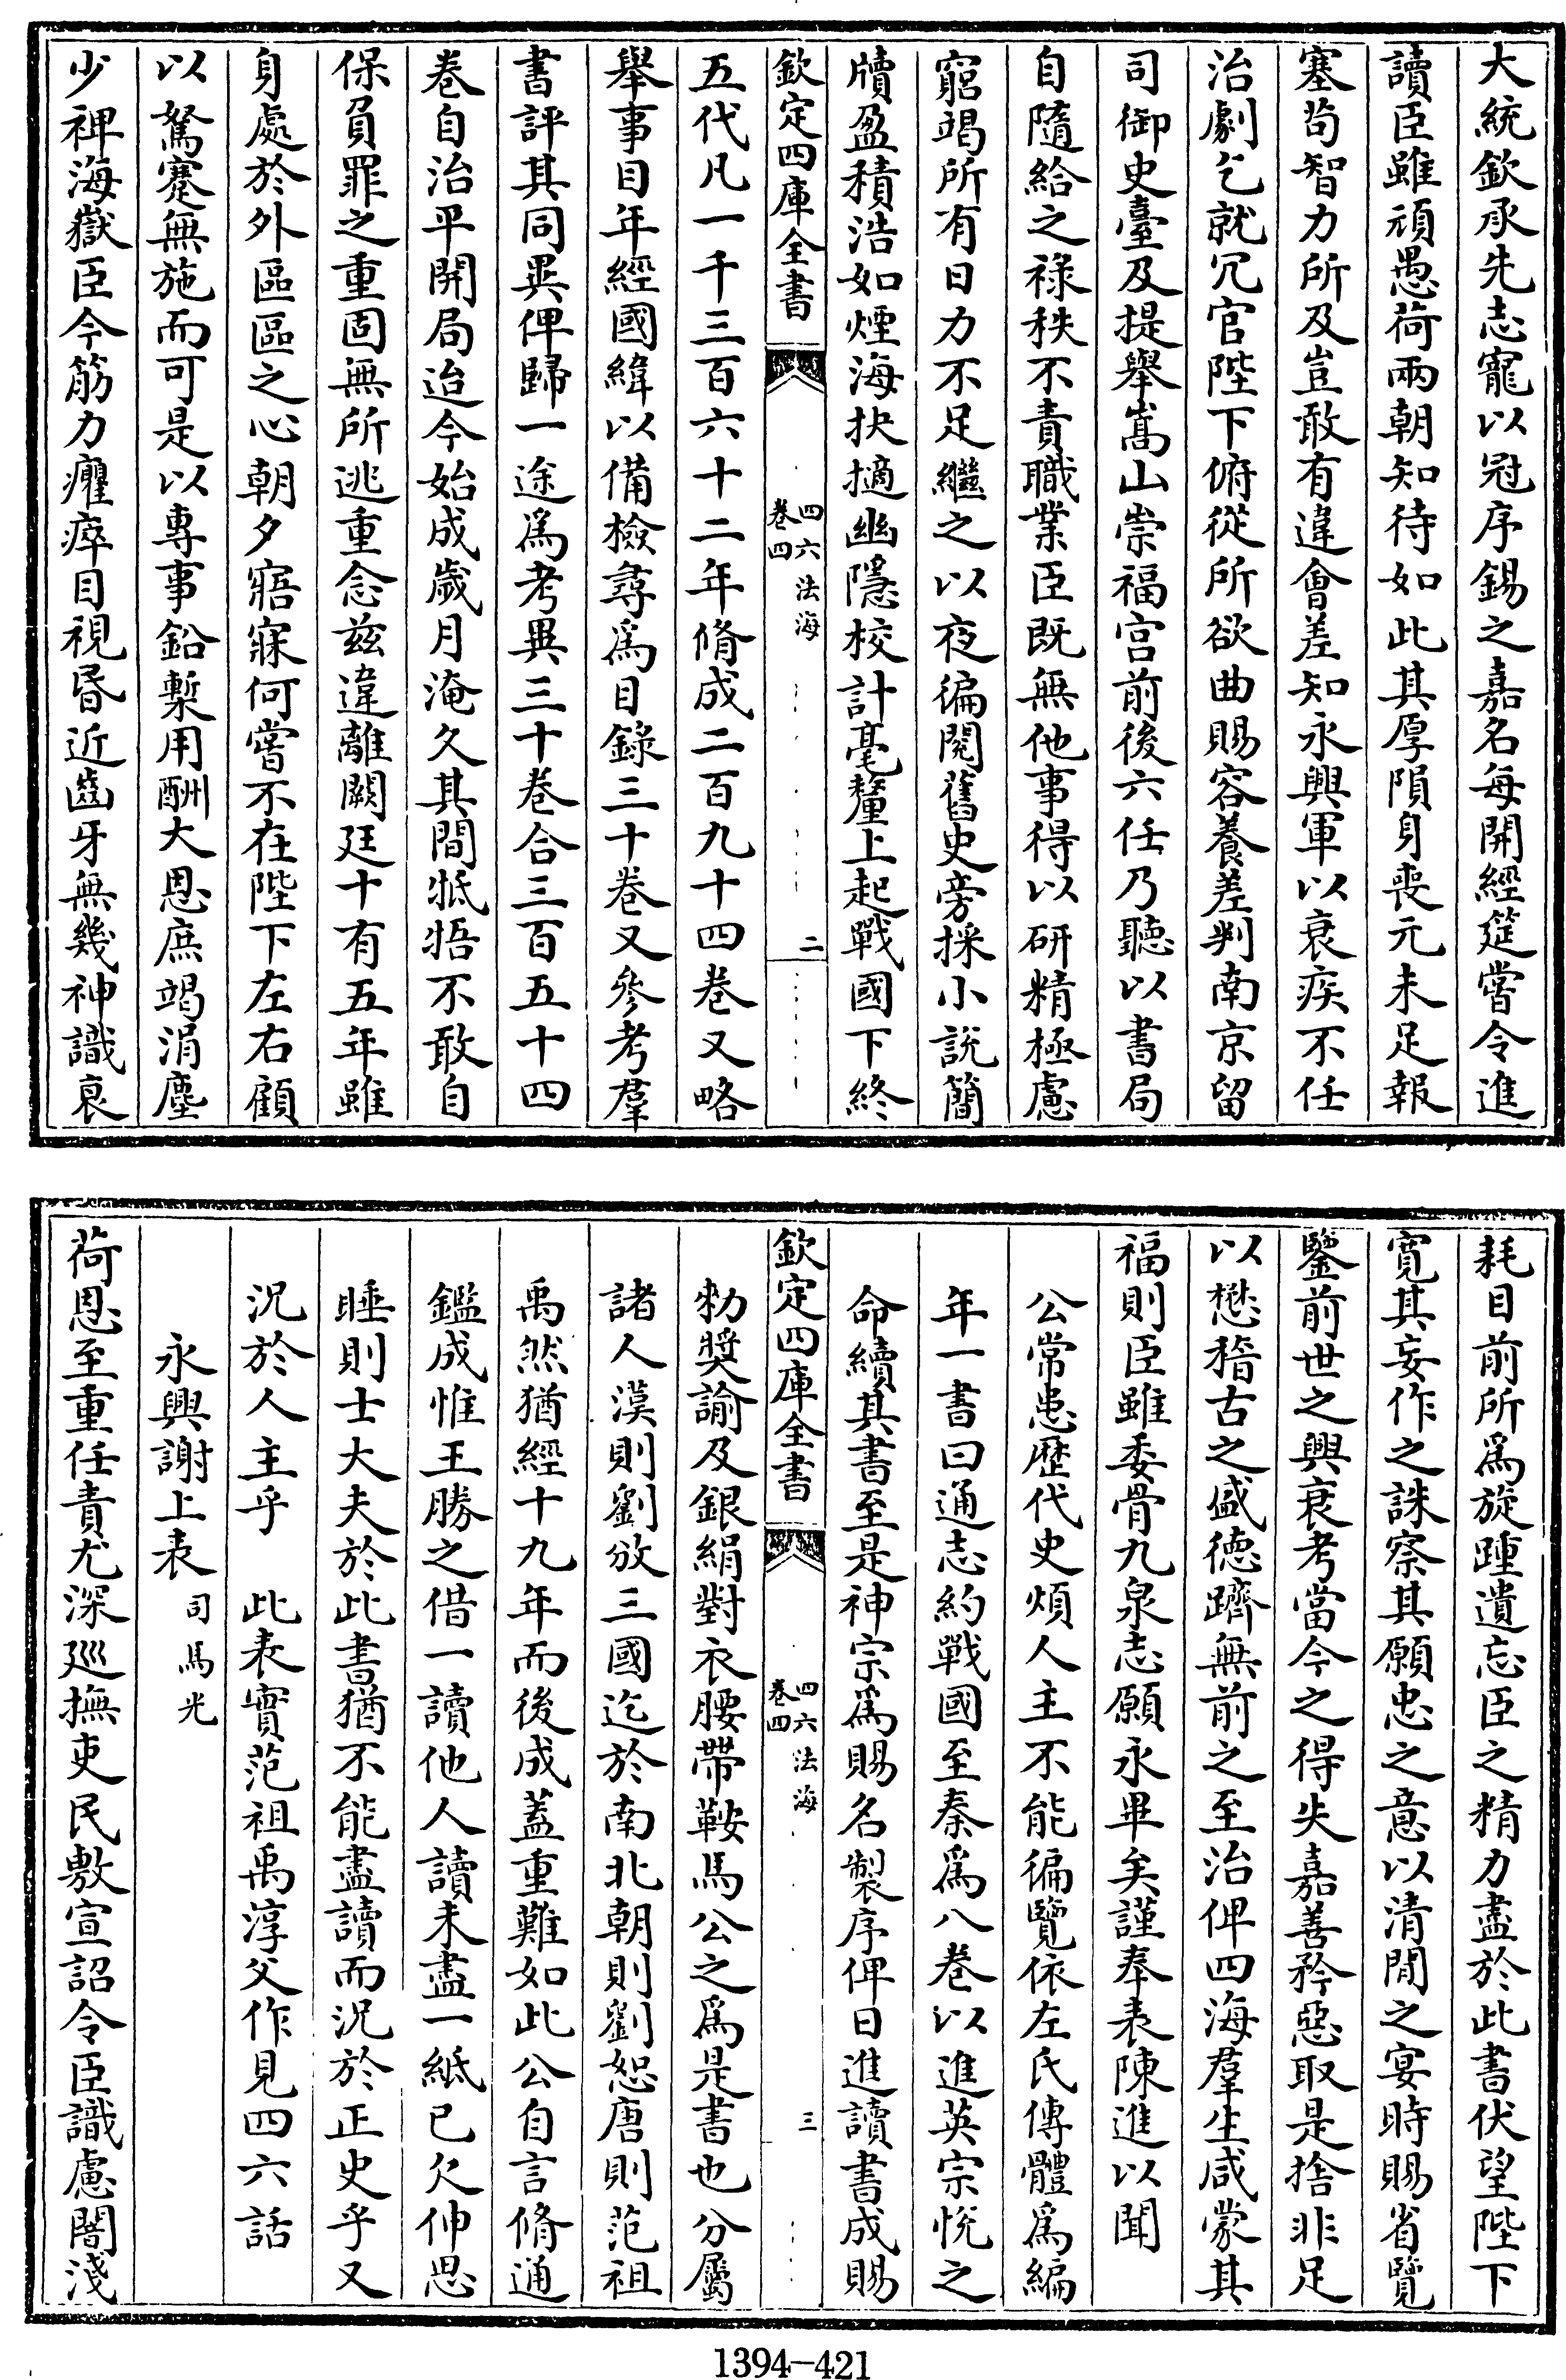 大統欽承先志寵以冠序錫之嘉名每開經筵嘗令進
讀臣雖頑愚荷兩朝知待如此其厚隕身喪元未足報
塞茍智力所及豈敢有違會差知永興軍以衰疾不任
治劇乞就冗官陛下俯從所欲曲賜容養差判南京留
司御史臺及提舉嵩山崇福宫前後六任乃聽以書局
自隨給之祿秩不責職業臣既無他事得以研精極慮
窮竭所有日力不足繼之以夜徧閱舊史旁採小說簡
牘盈積浩如煙海抉擿幽隱校計毫釐上起戰國下終
欽定四庫全書
四六法海
卷四
二
五代凡一千三百六十二年脩成二百九十四卷又略
舉事目年經國緯以備檢尋爲目錄三十卷又參考羣
書評其同異俾歸一途爲考異三十卷合三百五十四
卷自治平開局迨今始成歲月淹久其間牴牾不敢自
保負罪之重固無所逃重念兹違離闕廷十有五年雖
身處於外區區之心朝夕寤寐何嘗不在陛下左右顧
以駑蹇無施而可是以專事鉛槧用酬大恩庶竭涓塵
少裨海嶽臣今筋力癯瘁目視昏近齒牙無幾神識衰
耗目前所爲旋踵遺忘臣之精力盡於此書伏望陛下
寛其妄作之誅察其願忠之意以清閒之宴時賜省覽
鑒前世之興衰考當今之得失嘉善矜惡取是捨非足
以懋稽古之盛德躋無前之至治俾四海羣生咸蒙其
福則臣雖委骨九泉志願永畢矣謹奉表陳進以聞
公常患歷代史煩人主不能徧覽依左氏傳體爲編
年一書曰通志約戰國至秦爲八卷以進英宗悅之
命續其書至是神宗爲賜名製序俾日進讀書成賜
欽定四庫全書
四六法海
卷四
三
勅奬諭及銀絹對衣腰帶鞍馬公之爲是書也分屬
諸人漢則劉攽三國迄於南北朝則劉恕唐則范祖
禹然猶經十九年而後成蓋重難如此公自言脩通
鑑成惟王勝之借一讀他人讀未盡一紙已欠伸思
睡則士大夫於此書猶不能盡讀而況於正史乎又
況於人主乎　此表實范祖禹淳父作見四六話
永興謝上表 司馬光
荷恩至重任責尤深巡撫吏民敷宣詔令臣識慮闇淺
1394-421